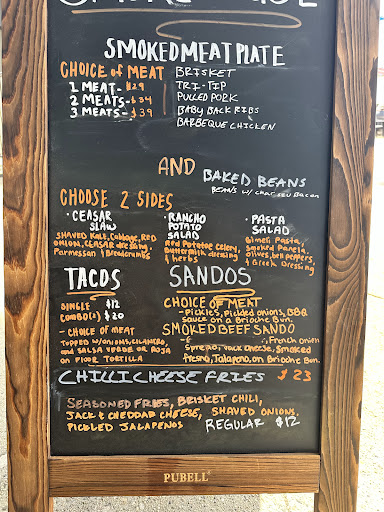 SMOKED MEAT PLATE
CHOICE of MEAT
1 MEAT - $29
2 MEATS - $34
3 MEATS - $39
BRISKET
TRI-TIP
PULLED PORK
BABY BACK RIBS
BARBEQUE CHICKEN
AND
BAKED BEANS
BEANS w/ CHAR SIU BACON
CHOOSE 2 SIDES
· CEASAR SLAW
SHAVED KALE, Cabbage, RED
ONION, CEASAR dressing,
Parmesan & Breadcrumbs
· RANCHO POTATO SALAD
Red Potatoe, Celery,
Buttermilk dressing
& herbs
· PASTA SALAD
Gimeli Pasta,
Smoked Panela,
olives, bell peppers,
& Greek Dressing
TACOS
SINGLE $12
COMBO(2) $20
- CHOICE of MEAT
TOPPED W/ONIONS, CILANTRO,
and SALSA VERDE OR ROJA
on FLOUR TORTILLA
SANDOS
CHOICE OF MEAT
- Pickles, Pickled onions, BBQ
sauce on a Brioche Bun.
SMOKED BEEF SANDO
French onion
SPREAD, Jack cheese, Smoked
fresno, Jalapeno, on Brioche Bun.
CHILLI CHEESE FRIES $23
SEASONED FRIES, BRISKET CHILI,
JACK & CHEDDAR CHEESE, SHAVED ONIONS,
PICKLED JALAPENOS
REGULAR $12
PUBELL